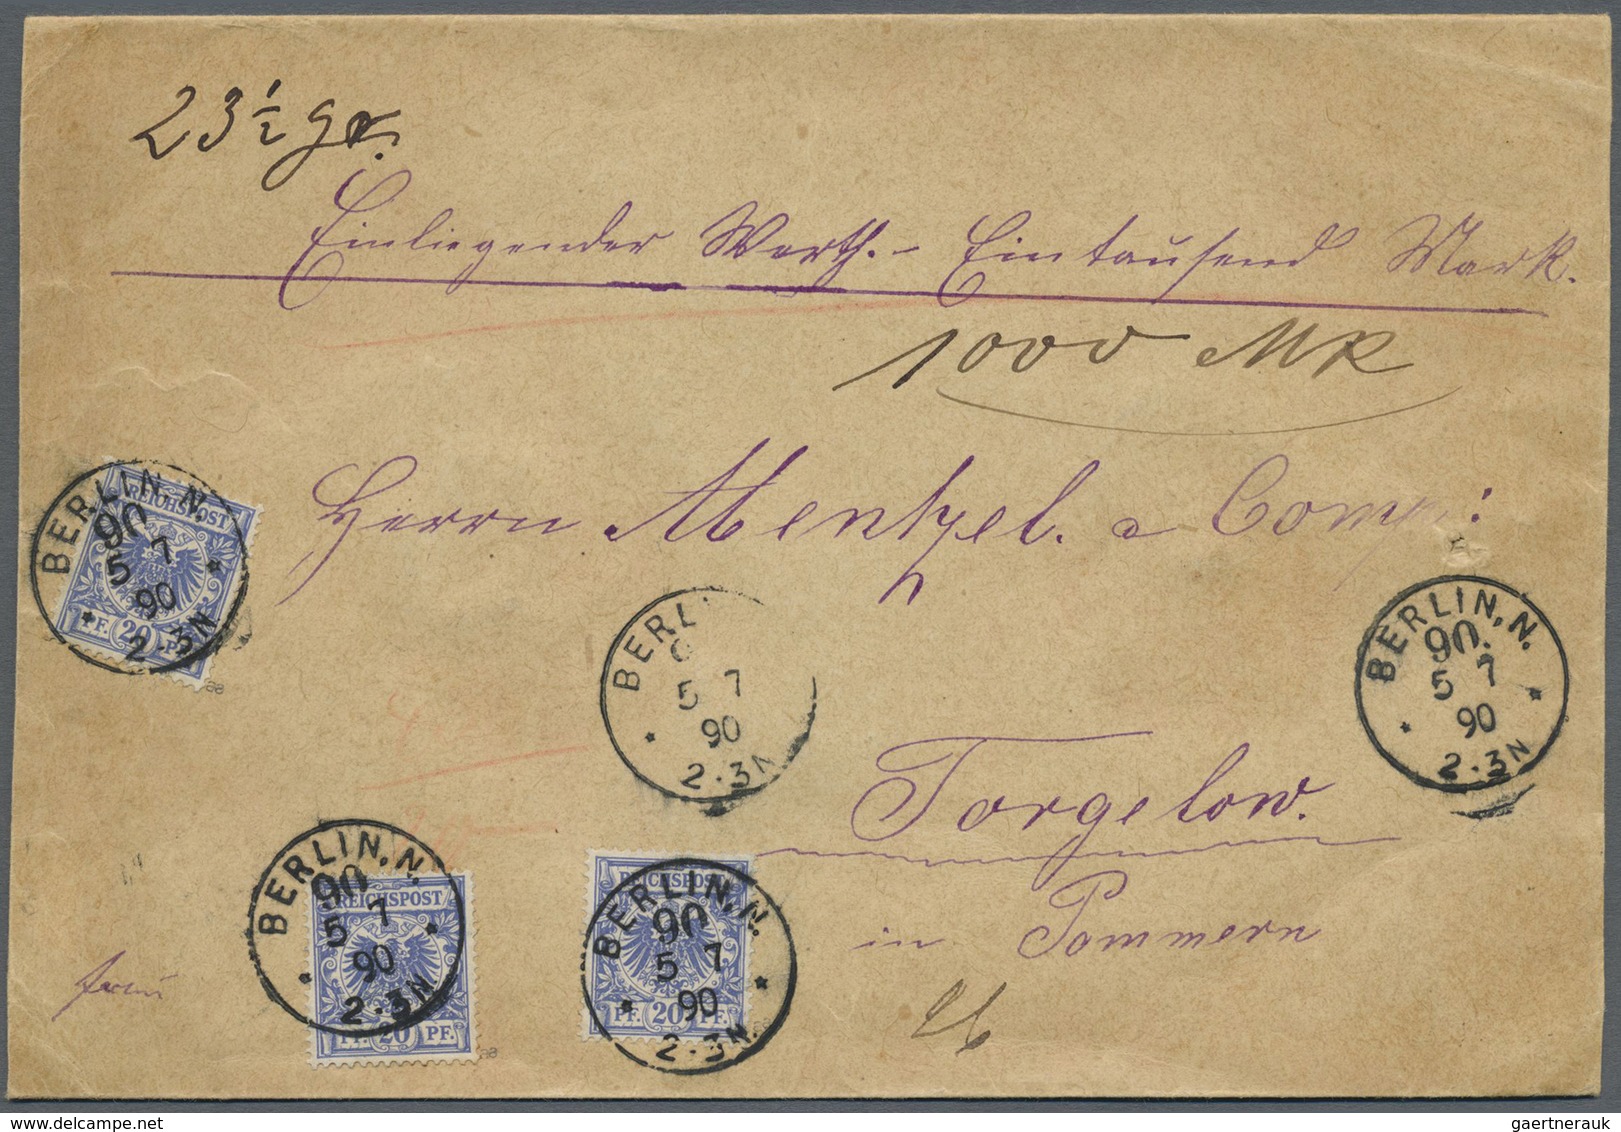 23 ½ gr.
Einliegender Werth. – Eintausend Mark.
1000 MK
Herrn Mentzel. & Comp:
BERLIN, N.
90.
5 7
90
2-3N
REICHSPOST
PF. 20 PF.
BERL
5 7
90
2-3N
BERLIN, N.
90.
5 7
90
2-3N
Torgelow.
in Pommern
BERLIN, N.
90
5 7
90
2-3N
REICHSPOST
PF. 20 PF.
BERLIN, N.
90
5 7
90
2-3N
REICHSPOST
PF. 20 PF.
frei
26
gaertnerauk